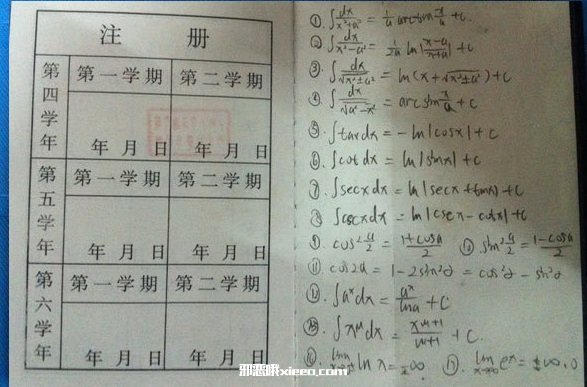 注 册
第四学年
第一学期 第二学期
年 月 日 年 月 日
第五学年
第一学期 第二学期
年 月 日 年 月 日
第六学年
第一学期 第二学期
年 月 日 年 月 日
①. ∫dx/(x²+a²) = 1/a arc tan x/a + c.
② ∫dx/(x²-a²) = 1/2a ln|(x-a)/(x+a)| + c
③. ∫dx/√(x²±a²) = ln(x+√(x²±a²)) + c
④. ∫dx/√(a²-x²) = arc sin x/a + c
⑤. ∫tanxdx = -ln|cosx| + c
⑥. ∫cotdx = ln|sinx| + c
⑦. ∫secxdx = ln|secx+tanx| + c
⑧. ∫cscxdx = ln|cscx-cotx| + c
⑨. cos²α/2 = (1+cosα)/2 ⑩ sin²α/2 = (1-cosα)/2
⑪ cos2α = 1-2sin²α = cos²α - sin²α
⑫. ∫aˣdx = aˣ/lna + C
⑬. ∫xᵘdx = xᵘ⁺¹/(u+1) + C.
lim ln x = ±∞ lim eˣ = +∞, 0
邪恶哦xieeo.com